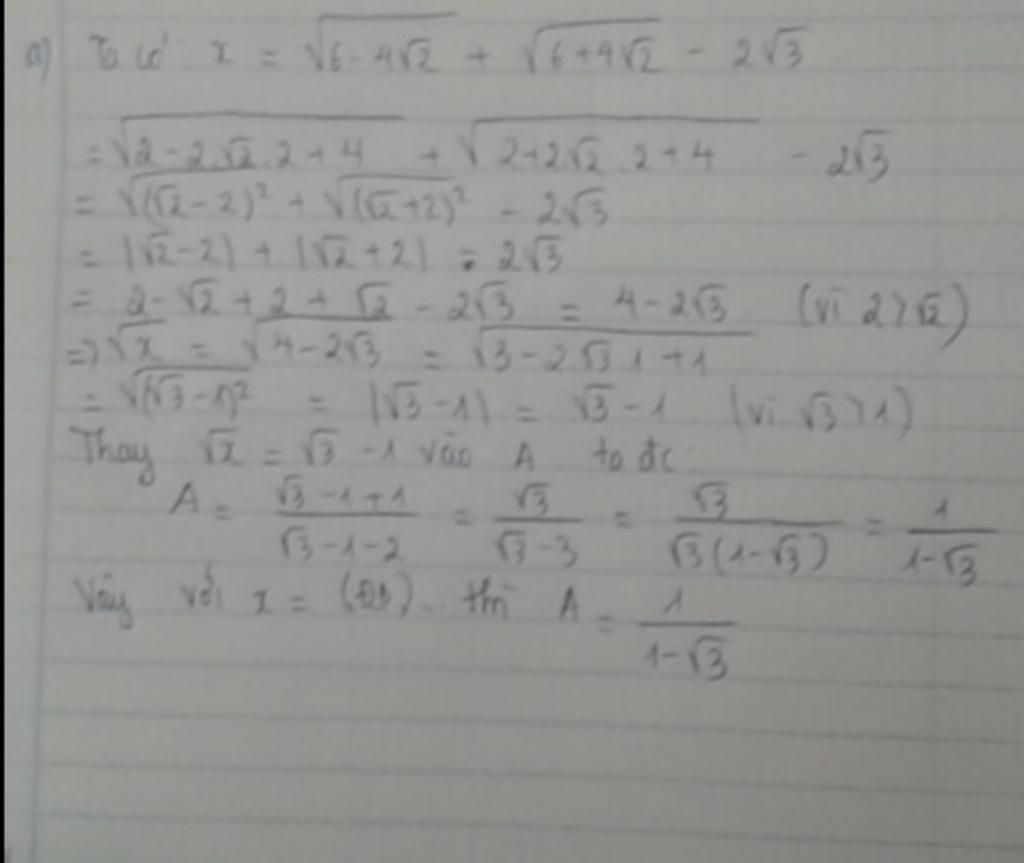 a) Ta có x = √(6-4√2) + √(6+4√2) - 2√3
= √(2-2.√2.2+4) + √(2+2√2.2+4) - 2√3
= √((√2-2)²) + √((√2+2)²) - 2√3
= |√2-2| + |√2+2| - 2√3
= 2-√2+2+√2-2√3 = 4-2√3 (vì 2>√2)
=> √x = √(4-2√3) = √(3-2√3.1+1)
= √((√3-1)²) = |√3-1| = √3-1 (vì √3>1)
Thay √x = √3-1 vào A ta đc:
A = (√3-1+1)/(√3-1-2) = √3/(√3-3) = √3/(√3(1-√3)) = 1/(1-√3)
Vậy với x = (ĐB).. thì A = 1/(1-√3)